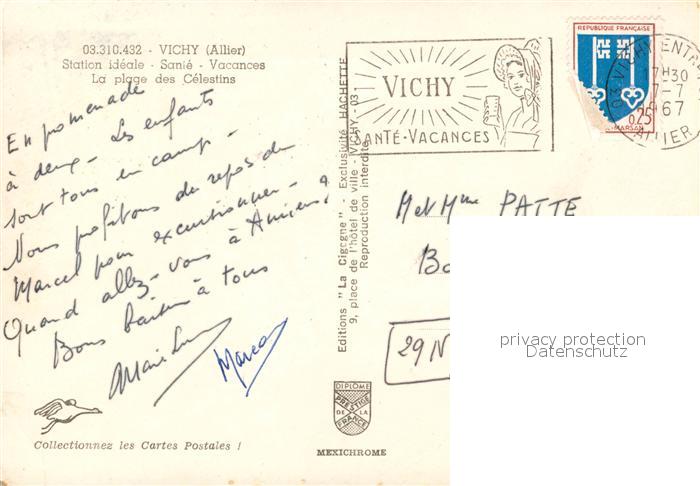 03.310.432 - VICHY (Allier)
Station idéale - Santé - Vacances
La plage des Célestins
En promenade
à deux - Les enfants
sont tous en camp -
Nous profitons du repos de
Marcel pour excursionner -
Quand allez-vous à Amiens ?
Bons baisers à tous
Marcel
Collectionnez les Cartes Postales !
Editions "La Cigogne" - Exclusivité HACHETTE
9, place de l'hôtel de ville - VICHY -03-
Reproduction interdite
DIPLOME
PRESTIGE
DE LA
FRANCE
MEXICHROME
VICHY
SANTÉ-VACANCES
REPUBLIQUE FRANÇAISE
0,25
03-VICHY
17H30
7-7
1967
ALLIER
M et Mme PATTE
29 N
privacy protection
Datenschutz